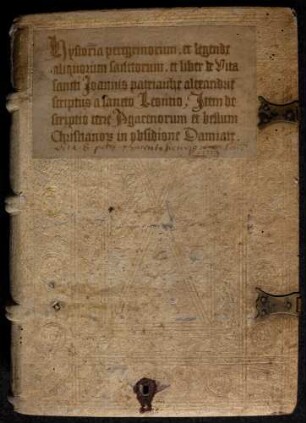 Hystoria peregrinorum. et legende
aliquorum sanctorum. et liber de Vita
sancti Joannis patriarche alexandrie
scriptus a sancto Leonino, Item de
scriptio terre Agarenorum et bellum
Christianorum in obsidione Damiate.